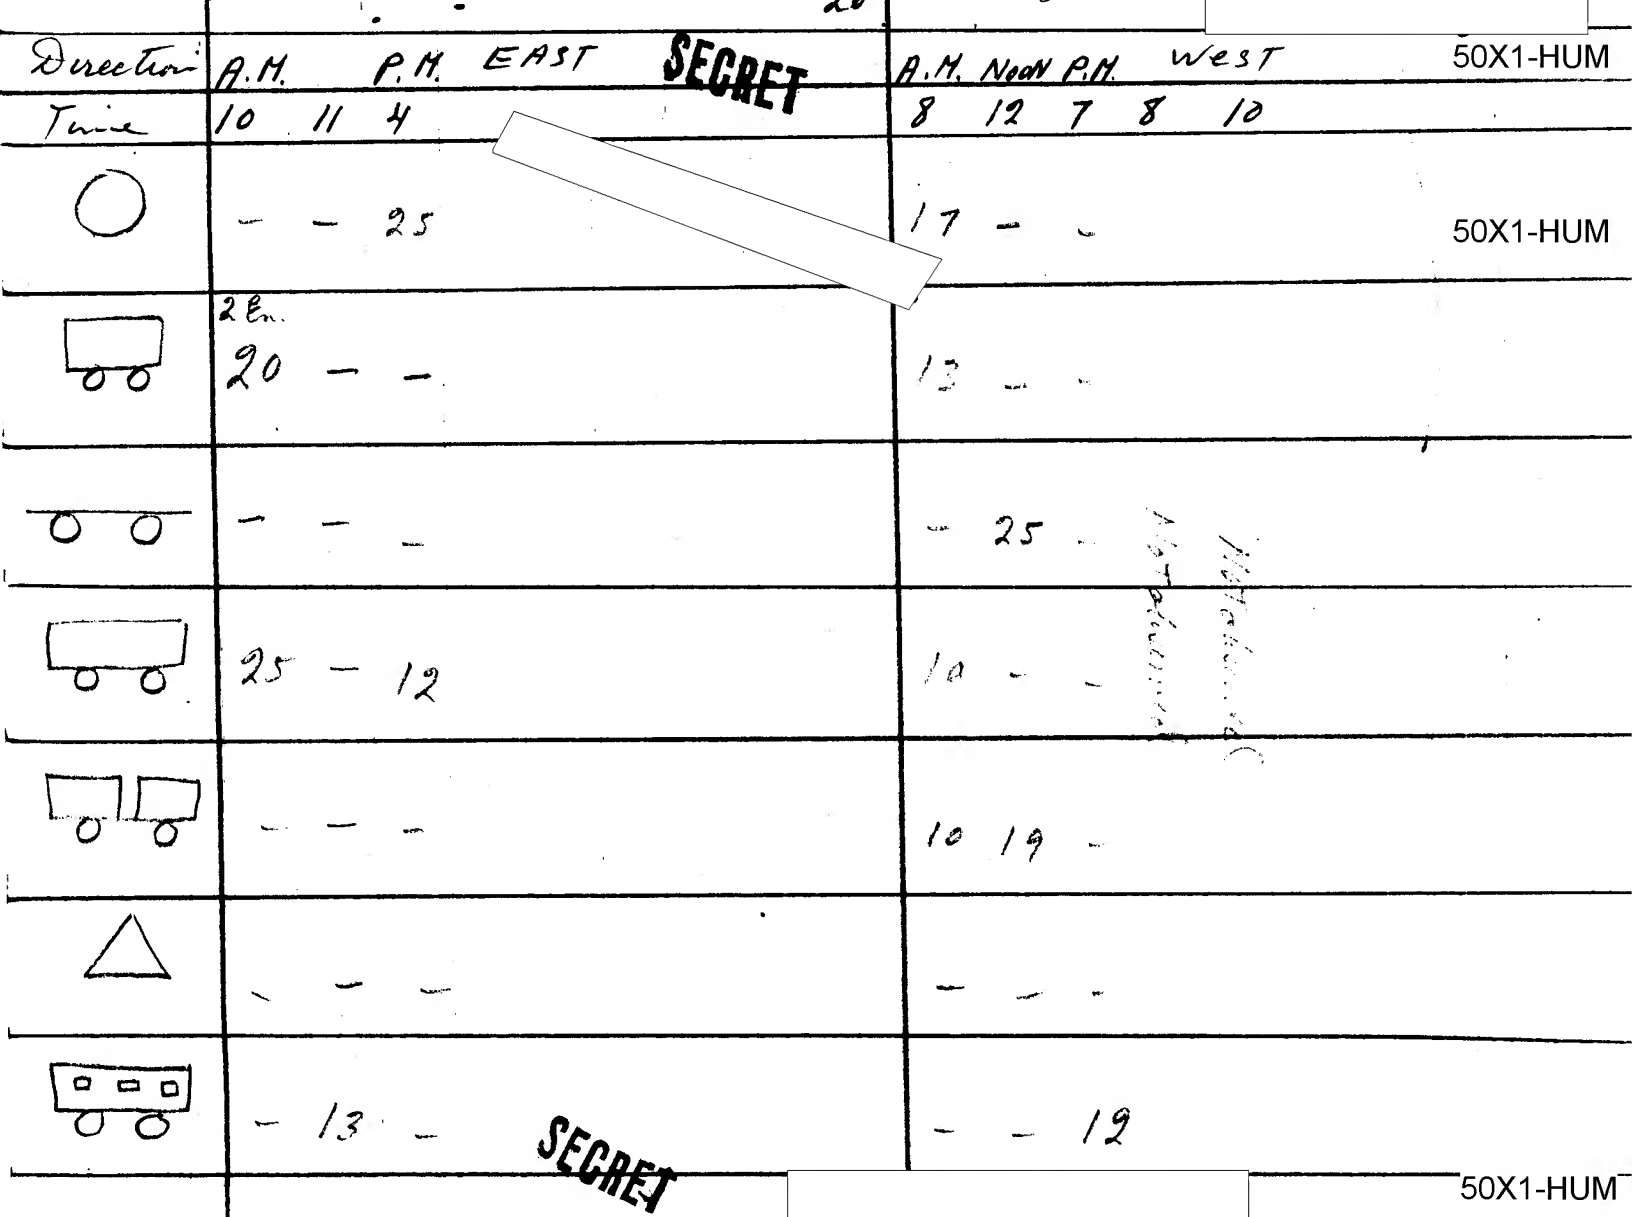 20
Direction A.M. P.M. EAST SECRET A.M. Noon P.M. WEST 50X1-HUM
Time 10 11 4 8 12 7 8 10
- - 25 17 - - 50X1-HUM
2 En.
20 - - 13 - -
- - - - 25 -
25 - 12 10 - -
- - - 10 19 -
- - - - - -
- 13 - - - 12
SECRET
50X1-HUM